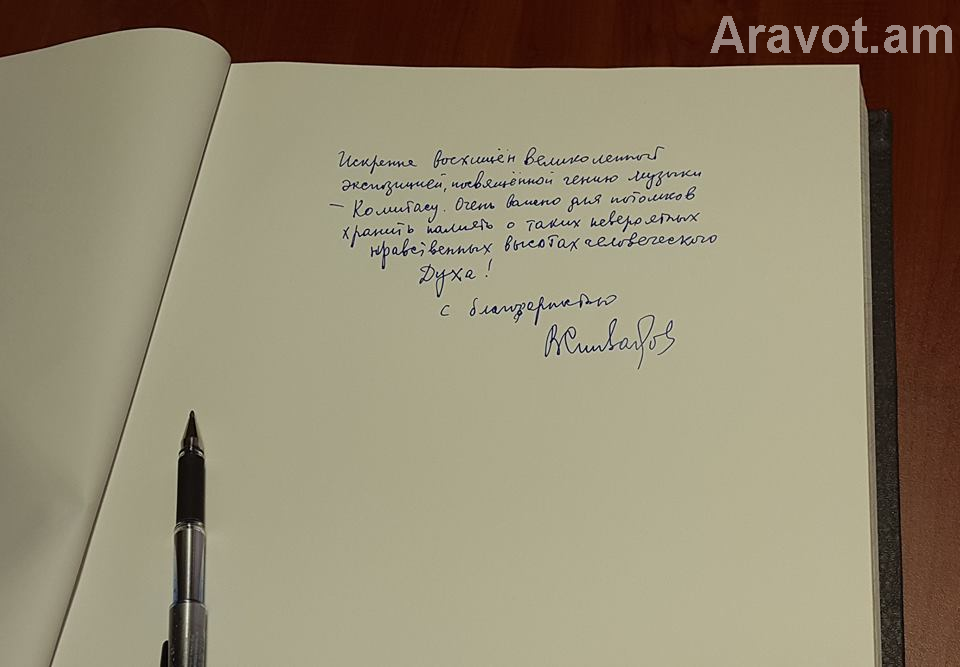 Aravot.am
Искренне восхищён великолепной
экспозицией, посвящённой гению музыки
— Комитасу. Очень важно для потомков
хранить память о таких невероятных
нравственных высотах человеческого
Духа!
С благодарностью
ВСпиваков